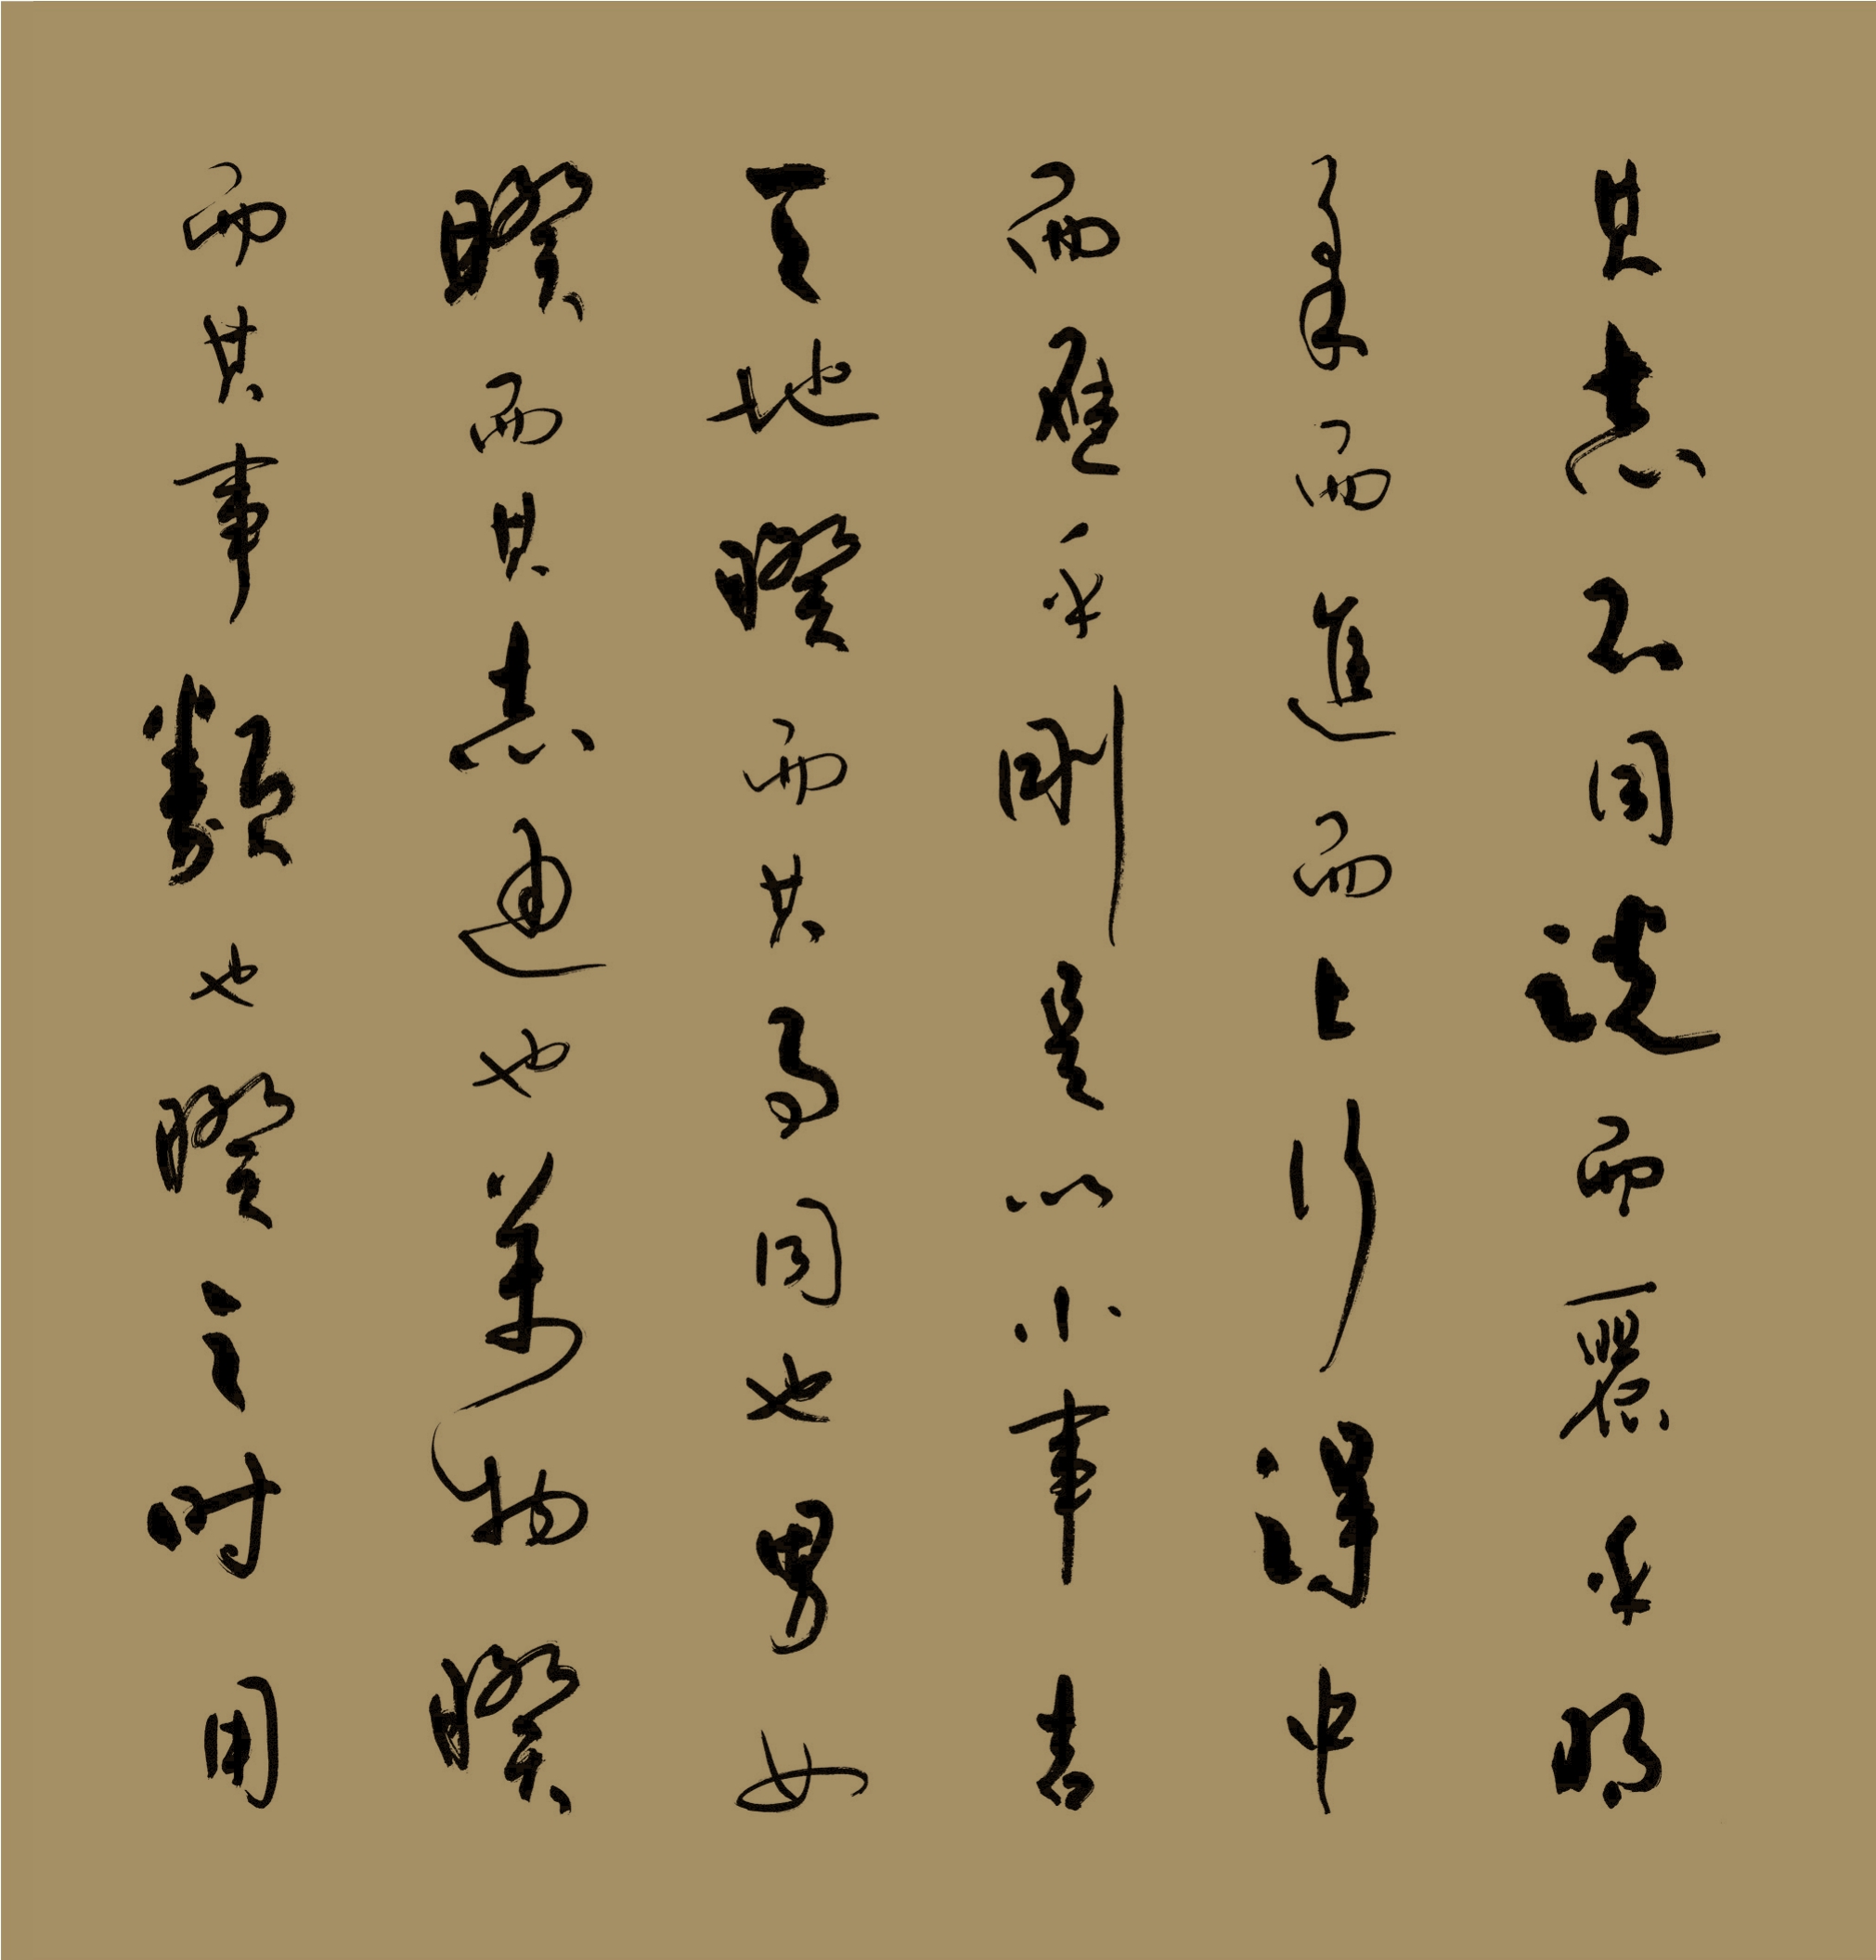 其志不同說而麗乎明
柔而進而上行得中
而應乎剛是以小事吉
天地睽而其事同也男女
睽而其志通也萬物睽
而其事類也睽之時用